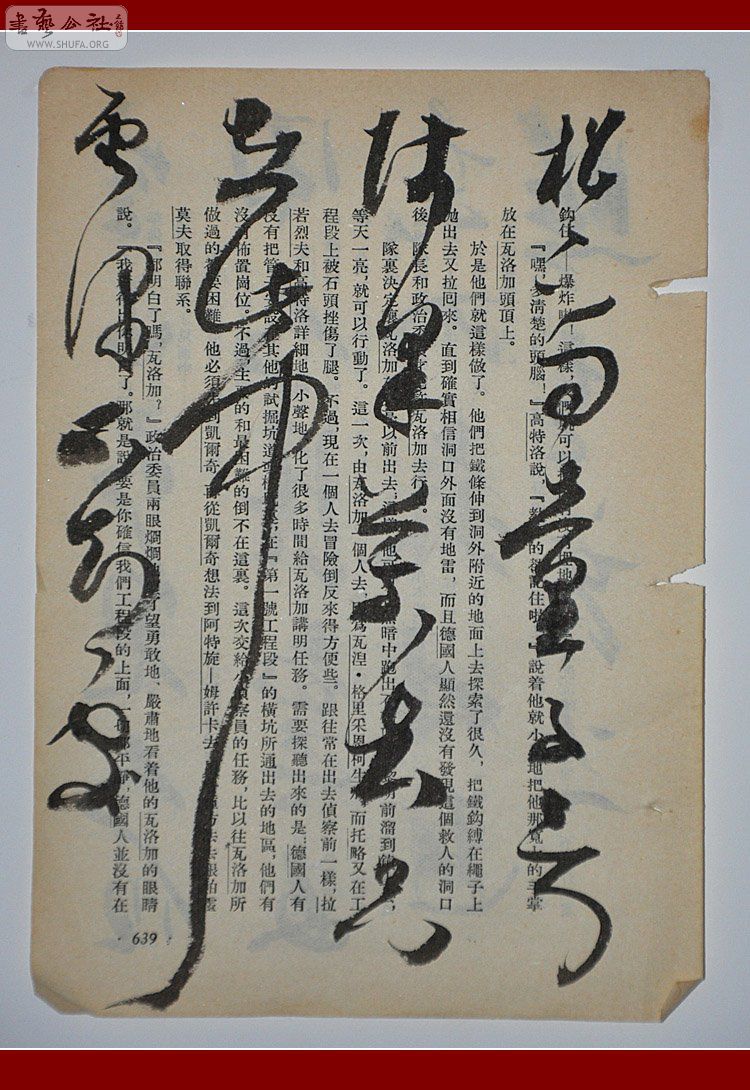 書藝公社
WWW.SHUFA.ORG
松下問童子言
師採藥去只
在此山中
雲深不知處
鈎住——爆炸啦！這樣，們就可以
『嘿，多清楚的頭腦！』高特洛說，的都記住啦。』說着他就小地把他那寬大的手掌
放在瓦洛加頭頂上。
於是他們就這樣做了。他們把鐵條伸到洞外附近的地面上去探索了很久，把鐵鈎縛在繩子上
拋出去又拉回來。直到確實相信洞口外面沒有地雷，而且德國人顯然還沒有發現這個救人的洞口
後，隊長和政治委瓦洛加去行
隊裏決定瓦洛加以前出去，暗中跑出前溜到
等天一亮，就可以行動了。這一次，由瓦洛加一個人去，因爲瓦涅·格里采恩柯生而托略又在工
程段上被石頭挫傷了腿。不過，現在一個人去冒險倒反來得方便些。跟往常在出去偵察前一樣，拉
若烈夫和高特洛詳細地、小聲地化了很多時間給瓦洛加講明任務。需要探聽出來的是：德國人有
沒有把管其他的試掘坑道在『第一號工程段』的橫坑所通出去的地區，他們有
沒有佈置崗位。不過，主要的和最困難的倒不在這裏。這次交給偵察員的任務，比以往瓦洛加所
做過的都要困難。他必須到凱爾奇，再從凱爾奇想法到阿特旋—姆許卡去
莫夫取得聯系。
『都明白了嗎，瓦洛加？』政治委員兩眼爛爛地望勇敢地、嚴肅地看着他的瓦洛加的眼睛
說。『我明白了。那就是說要是你確信我們工程段的上面，一切都平靜，德國人並沒有在
· 639 ·